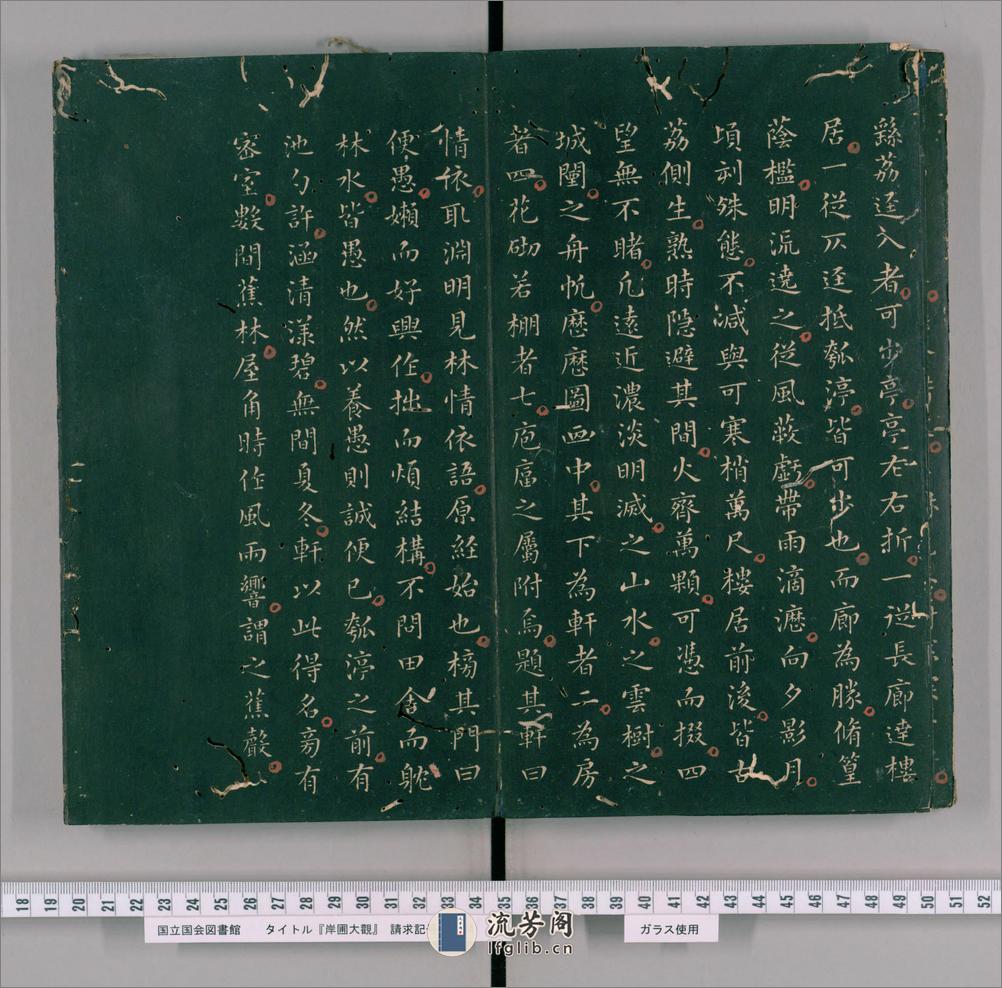 繇荔逕入者可步亭亭左右折一從長廊達樓
居一從仄逕抵瓠渟皆可步也而廊為勝脩篁
蔭檻明流遶之從風蔌戲帶雨滴瀝向夕影月
頃刻殊態不減與可寒梢萬尺樓居前後皆古
荔側生熟時隱避其間火齊萬顆可憑而掇四
望無不睹凡遠近濃淡明滅之山水之雲樹之
城闉之舟帆歷歷圖画中其下為軒者二為房
者四花砌若棚者七庖廥之屬附焉題其軒曰
情依取淵明見林情依語原經始也榜其門曰
便愚嬾而好興作拙而煩結構不問田舍而躭
林水皆愚也然以養愚則誠便已瓠渟之前有
池勺許涵清漾碧無間夏冬軒以此得名旁有
密室數間蕉林屋角時作風雨響謂之蕉聲
国立国会図書館 タイトル『岸圃大觀』 請求記
流芳阁
lfglib.cn
ガラス使用
18 19 20 21 22 23 24 25 26 27 28 29 30 31 32 33 34 35 36 37 38 39 40 41 42 43 44 45 46 47 48 49 50 51 52